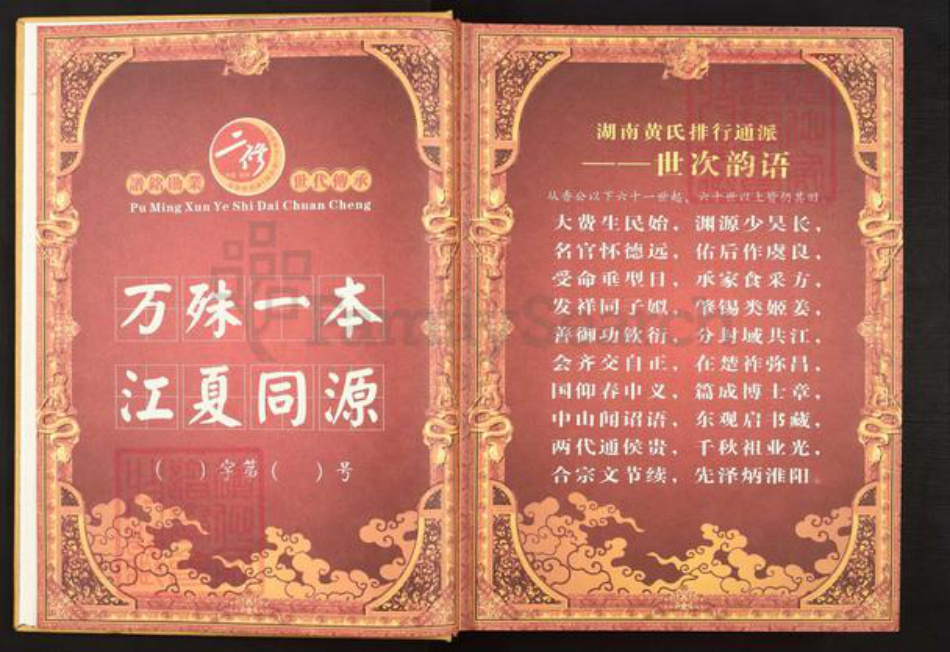 二修
譜銘勋業 世代傳承
Pu Ming Xun Ye Shi Dai Chuan Cheng
万殊一本
江夏同源
( )字第( )号
湖南黄氏排行通派
——世次韵语
从香公以下六十一世起，六十世以上皆仍其旧
大费生民始，渊源少昊长，
名官怀德远，佑后作虞良，
受命垂型日，承家食采方，
发祥同子姒，肇锡类姬姜，
善御功钦衍，分封域共江，
会齐交自正，在楚祚弥昌，
国仰春申义，篇成博士章，
中山闻诏语，东观启书藏，
两代通侯贵，千秋祖业光，
合宗文节续，先泽炳淮阳。
FamilySearch